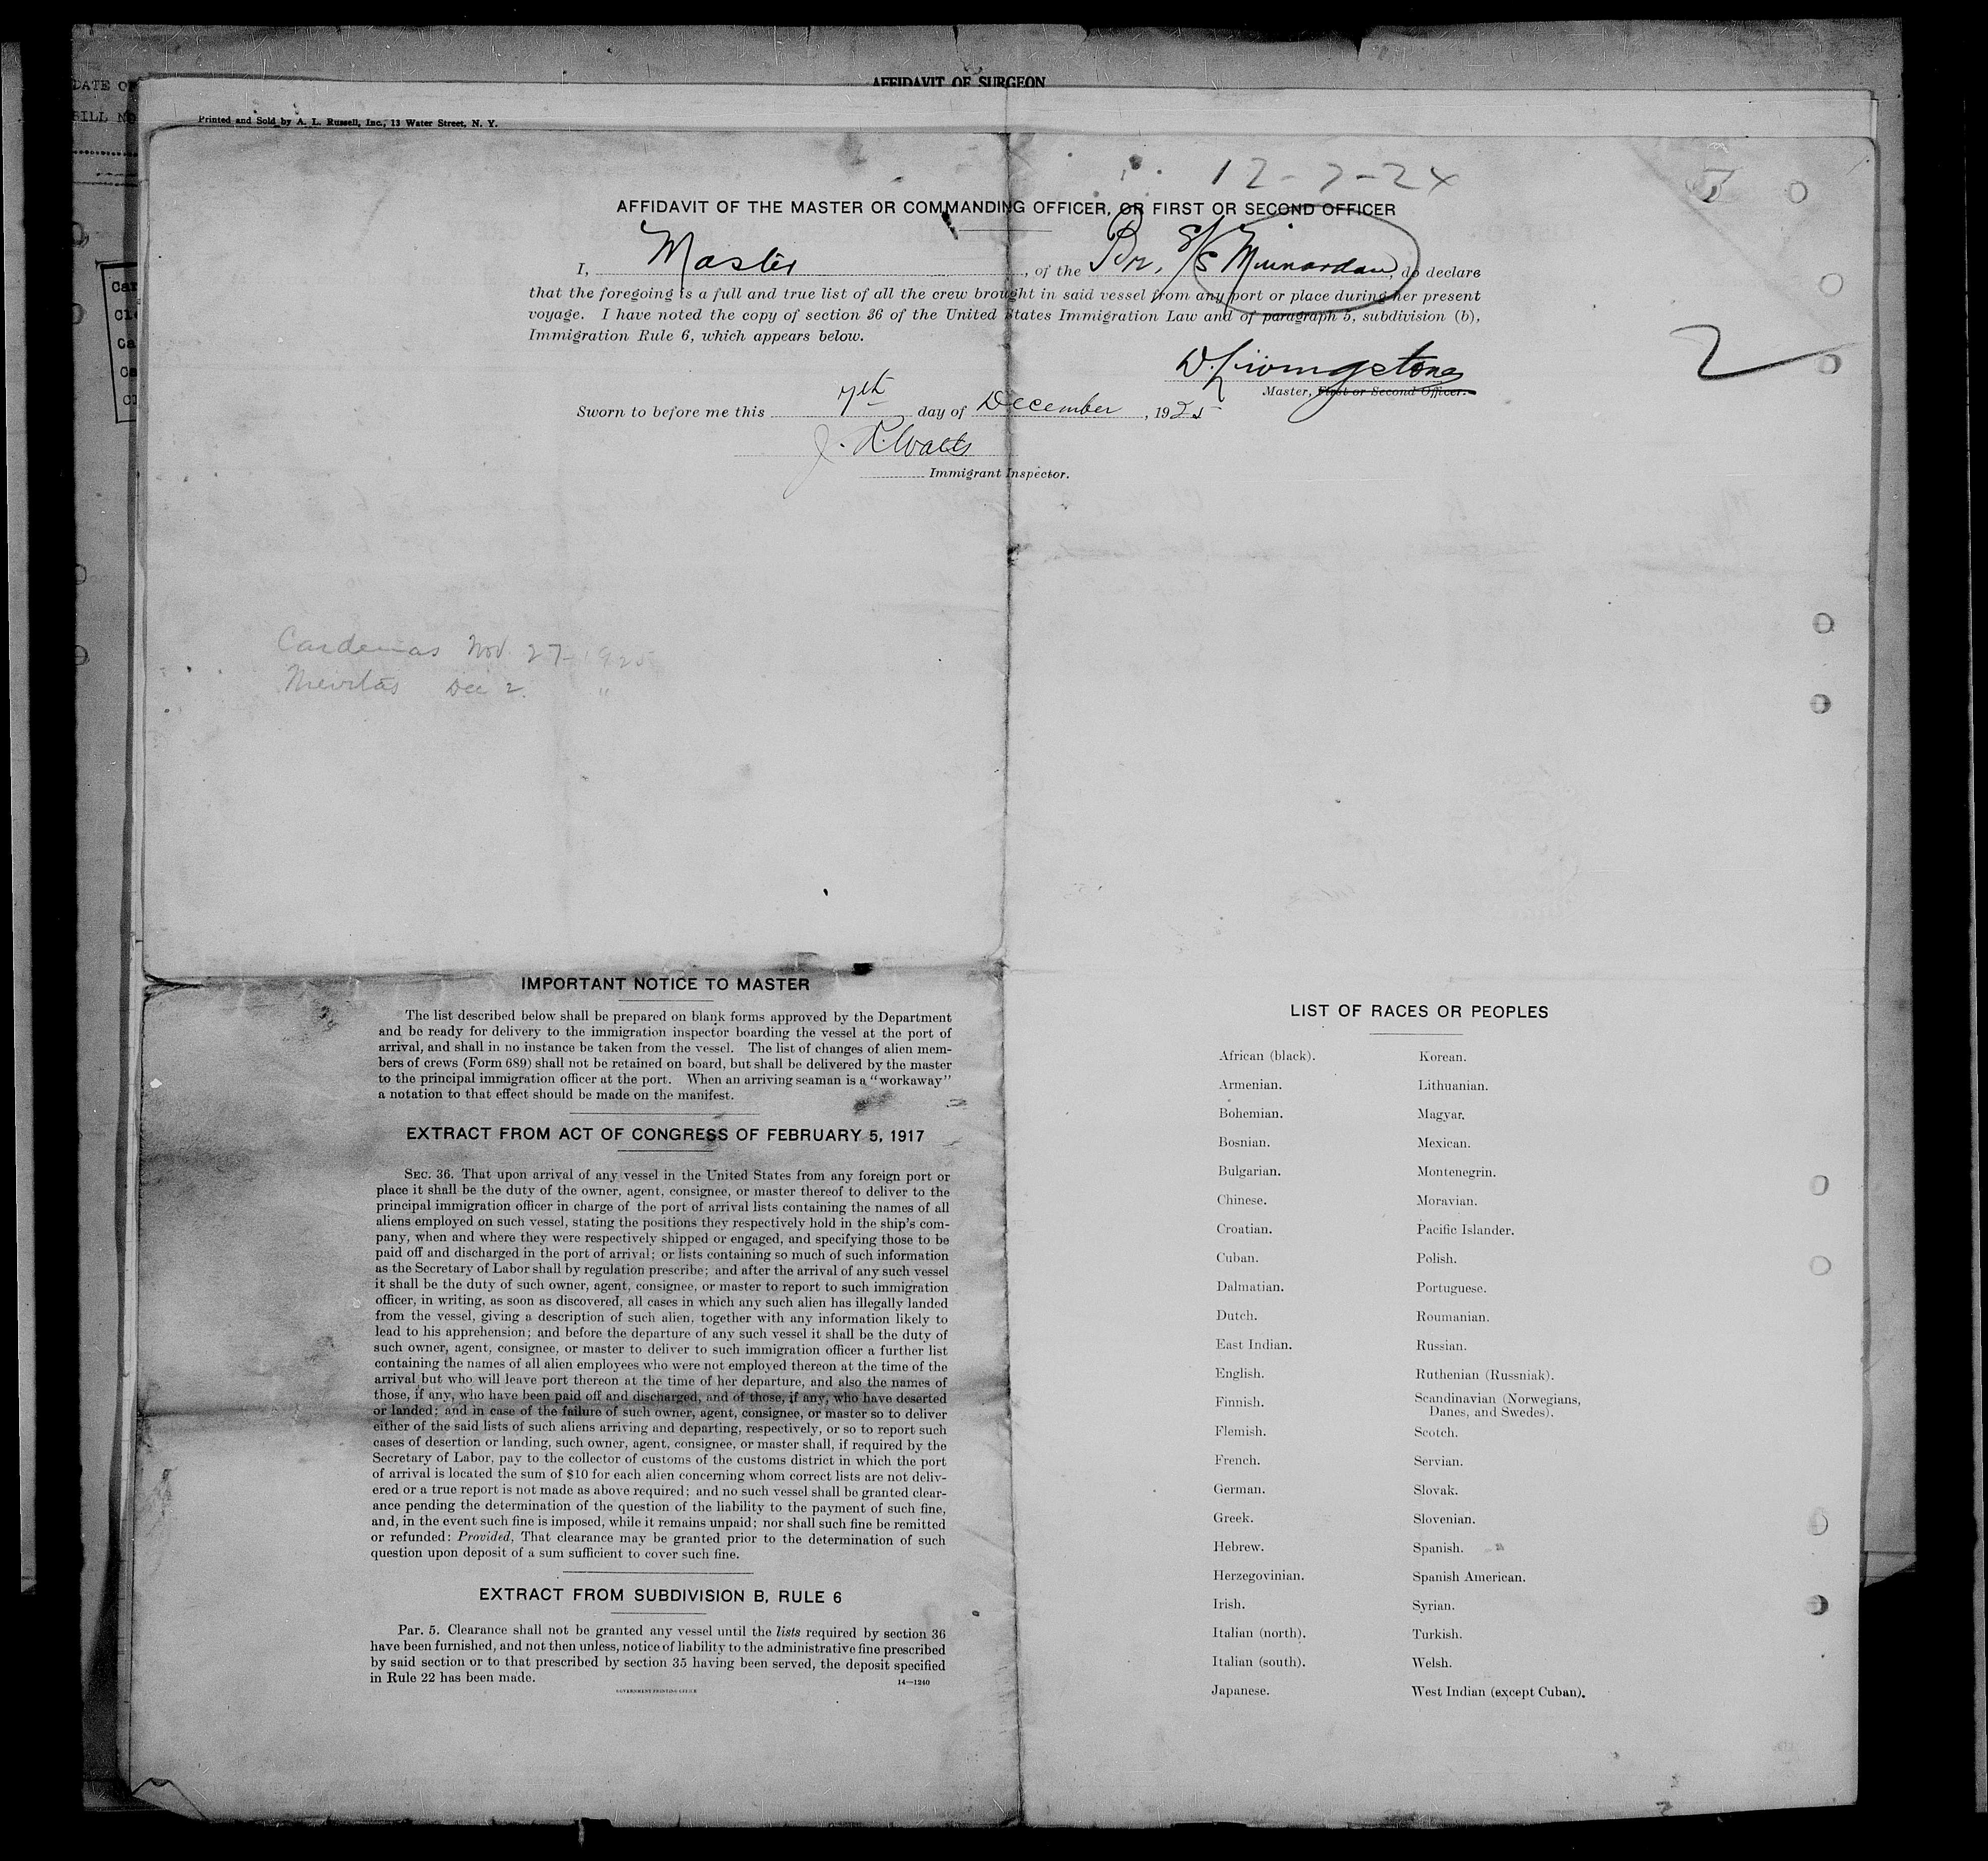 DATE OF
AFFIDAVIT OF SURGEON
BILL NO
Printed and Sold by A. L. Russell, Inc., 13 Water Street, N. Y.
12-7-24
AFFIDAVIT OF THE MASTER OR COMMANDING OFFICER, OR FIRST OR SECOND OFFICER
I, Master, of the Br. S/S Munardan, do declare
that the foregoing is a full and true list of all the crew brought in said vessel from any port or place during her present
voyage. I have noted the copy of section 36 of the United States Immigration Law and of paragraph 5, subdivision (b),
Immigration Rule 6, which appears below.
2
D. Livingstone
Master, First or Second Officer.
Sworn to before me this 7th day of December, 1925
J. R. Watts
Immigrant Inspector.
Cardenas Nov. 27-1925
Nuevitas Dec 2. "
IMPORTANT NOTICE TO MASTER
The list described below shall be prepared on blank forms approved by the Department
and be ready for delivery to the immigration inspector boarding the vessel at the port of
arrival, and shall in no instance be taken from the vessel. The list of changes of alien mem-
bers of crews (Form 689) shall not be retained on board, but shall be delivered by the master
to the principal immigration officer at the port. When an arriving seaman is a "workaway"
a notation to that effect should be made on the manifest.
EXTRACT FROM ACT OF CONGRESS OF FEBRUARY 5, 1917
SEC. 36. That upon arrival of any vessel in the United States from any foreign port or
place it shall be the duty of the owner, agent, consignee, or master thereof to deliver to the
principal immigration officer in charge of the port of arrival lists containing the names of all
aliens employed on such vessel, stating the positions they respectively hold in the ship's com-
pany, when and where they were respectively shipped or engaged, and specifying those to be
paid off and discharged in the port of arrival; or lists containing so much of such information
as the Secretary of Labor shall by regulation prescribe; and after the arrival of any such vessel
it shall be the duty of such owner, agent, consignee, or master to report to such immigration
officer, in writing, as soon as discovered, all cases in which any such alien has illegally landed
from the vessel, giving a description of such alien, together with any information likely to
lead to his apprehension; and before the departure of any such vessel it shall be the duty of
such owner, agent, consignee, or master to deliver to such immigration officer a further list
containing the names of all alien employees who were not employed thereon at the time of the
arrival but who will leave port thereon at the time of her departure, and also the names of
those, if any, who have been paid off and discharged, and of those, if any, who have deserted
or landed; and in case of the failure of such owner, agent, consignee, or master so to deliver
either of the said lists of such aliens arriving and departing, respectively, or so to report such
cases of desertion or landing, such owner, agent, consignee, or master shall, if required by the
Secretary of Labor, pay to the collector of customs of the customs district in which the port
of arrival is located the sum of $10 for each alien concerning whom correct lists are not deliv-
ered or a true report is not made as above required; and no such vessel shall be granted clear-
ance pending the determination of the question of the liability to the payment of such fine,
and, in the event such fine is imposed, while it remains unpaid; nor shall such fine be remitted
or refunded: Provided, That clearance may be granted prior to the determination of such
question upon deposit of a sum sufficient to cover such fine.
EXTRACT FROM SUBDIVISION B, RULE 6
Par. 5. Clearance shall not be granted any vessel until the lists required by section 36
have been furnished, and not then unless, notice of liability to the administrative fine prescribed
by said section or to that prescribed by section 35 having been served, the deposit specified
in Rule 22 has been made.
14—1240
GOVERNMENT PRINTING OFFICE
LIST OF RACES OR PEOPLES
African (black). Korean.
Armenian. Lithuanian.
Bohemian. Magyar.
Bosnian. Mexican.
Bulgarian. Montenegrin.
Chinese. Moravian.
Croatian. Pacific Islander.
Cuban. Polish.
Dalmatian. Portuguese.
Dutch. Roumanian.
East Indian. Russian.
English. Ruthenian (Russniak).
Finnish. Scandinavian (Norwegians,
Danes, and Swedes).
Flemish. Scotch.
French. Servian.
German. Slovak.
Greek. Slovenian.
Hebrew. Spanish.
Herzegovinian. Spanish American.
Irish. Syrian.
Italian (north). Turkish.
Italian (south). Welsh.
Japanese. West Indian (except Cuban).